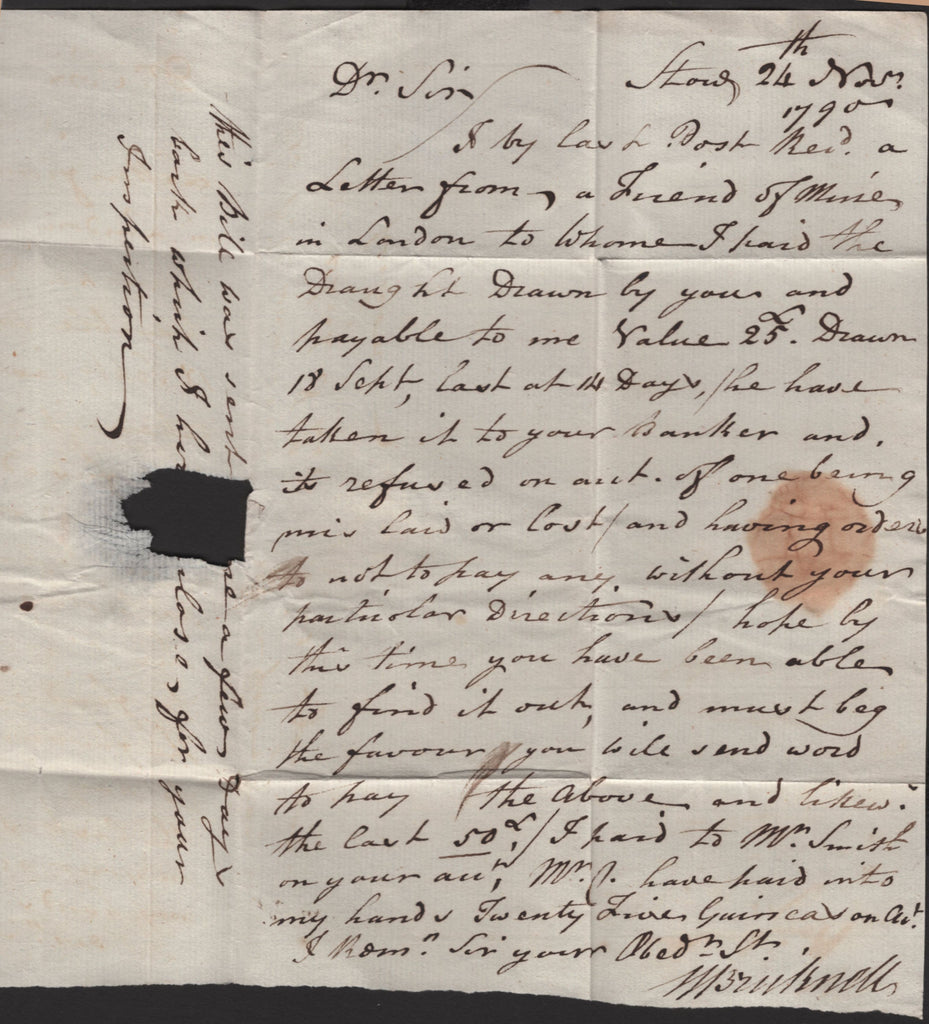 Dr. Sir Stow 24th Novr.
1790
I by last Post Recd. a
Letter from a Friend of Mine
in London to Whome I paid the
Draught Drawn by you and
payable to me Value 25£. Drawn
18 Sept, last at 14 Days, / he have
taken it to your Banker and,
its refused on acct. of one being
mis laid or lost / and having orders
to not to pay any without your
particular Directions / hope by
this time you have been able
to find it out, and must beg
the favour you will send word
to pay the Above and likew.
the last 50£, / I paid to Mr. Smith
on your acct, Mr. have paid into
my hands Twenty Five Guineas on Act.
I Remn. Sir your Obedn St.
Bricknell
this Bill was sent me a few Days
back which I her inclose for your
Inspection